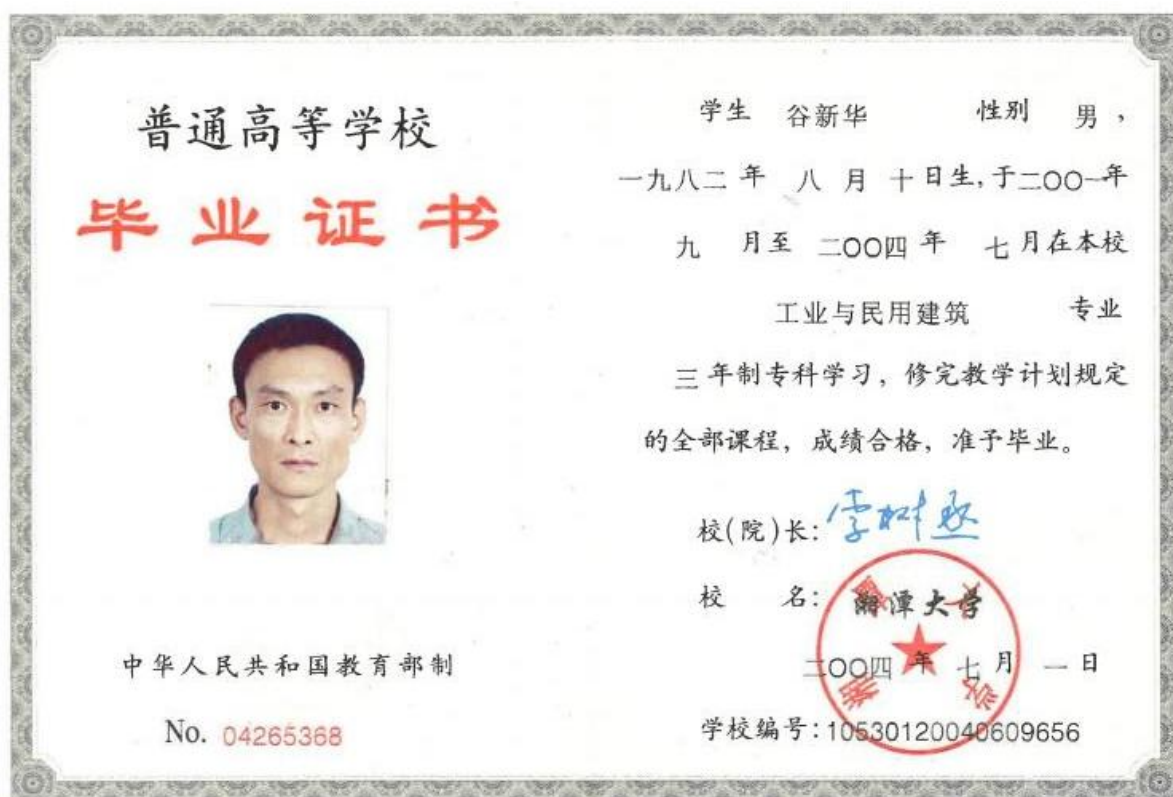 普通高等学校
毕业证书
中华人民共和国教育部制
No. 04265368
学生 谷新华 性别 男，
一九八二 年 八 月 十日生,于二〇〇一年
九 月至 二〇〇四 年 七月在本校
工业与民用建筑 专业
三 年制专科学习，修完教学计划规定
的全部课程，成绩合格，准予毕业。
校(院)长: 李树丞
校 名: 湘潭大学
湘潭大学
二〇〇四 年 七 月 一 日
学校编号:10530120040609656